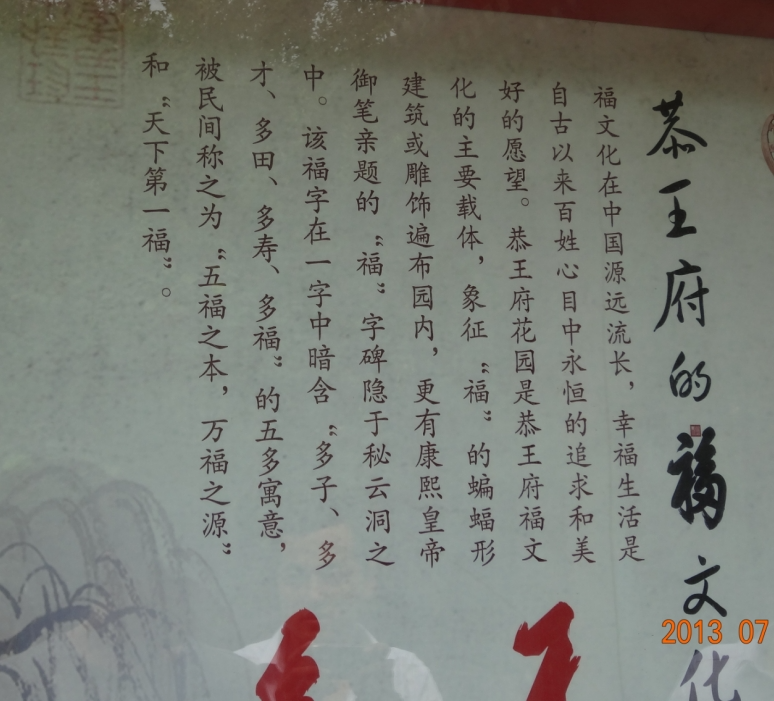 恭王府的福文化
福文化在中国源远流长，幸福生活是
自古以来百姓心目中永恒的追求和美
好的愿望。恭王府花园是恭王府福文
化的主要载体，象征“福”的蝙蝠形
建筑或雕饰遍布园内，更有康熙皇帝
御笔亲题的“福”字碑隐于秘云洞之
中。该福字在一字中暗含“多子、多
才、多田、多寿、多福”的五多寓意，
被民间称之为“五福之本，万福之源”
和“天下第一福”。
2013 07